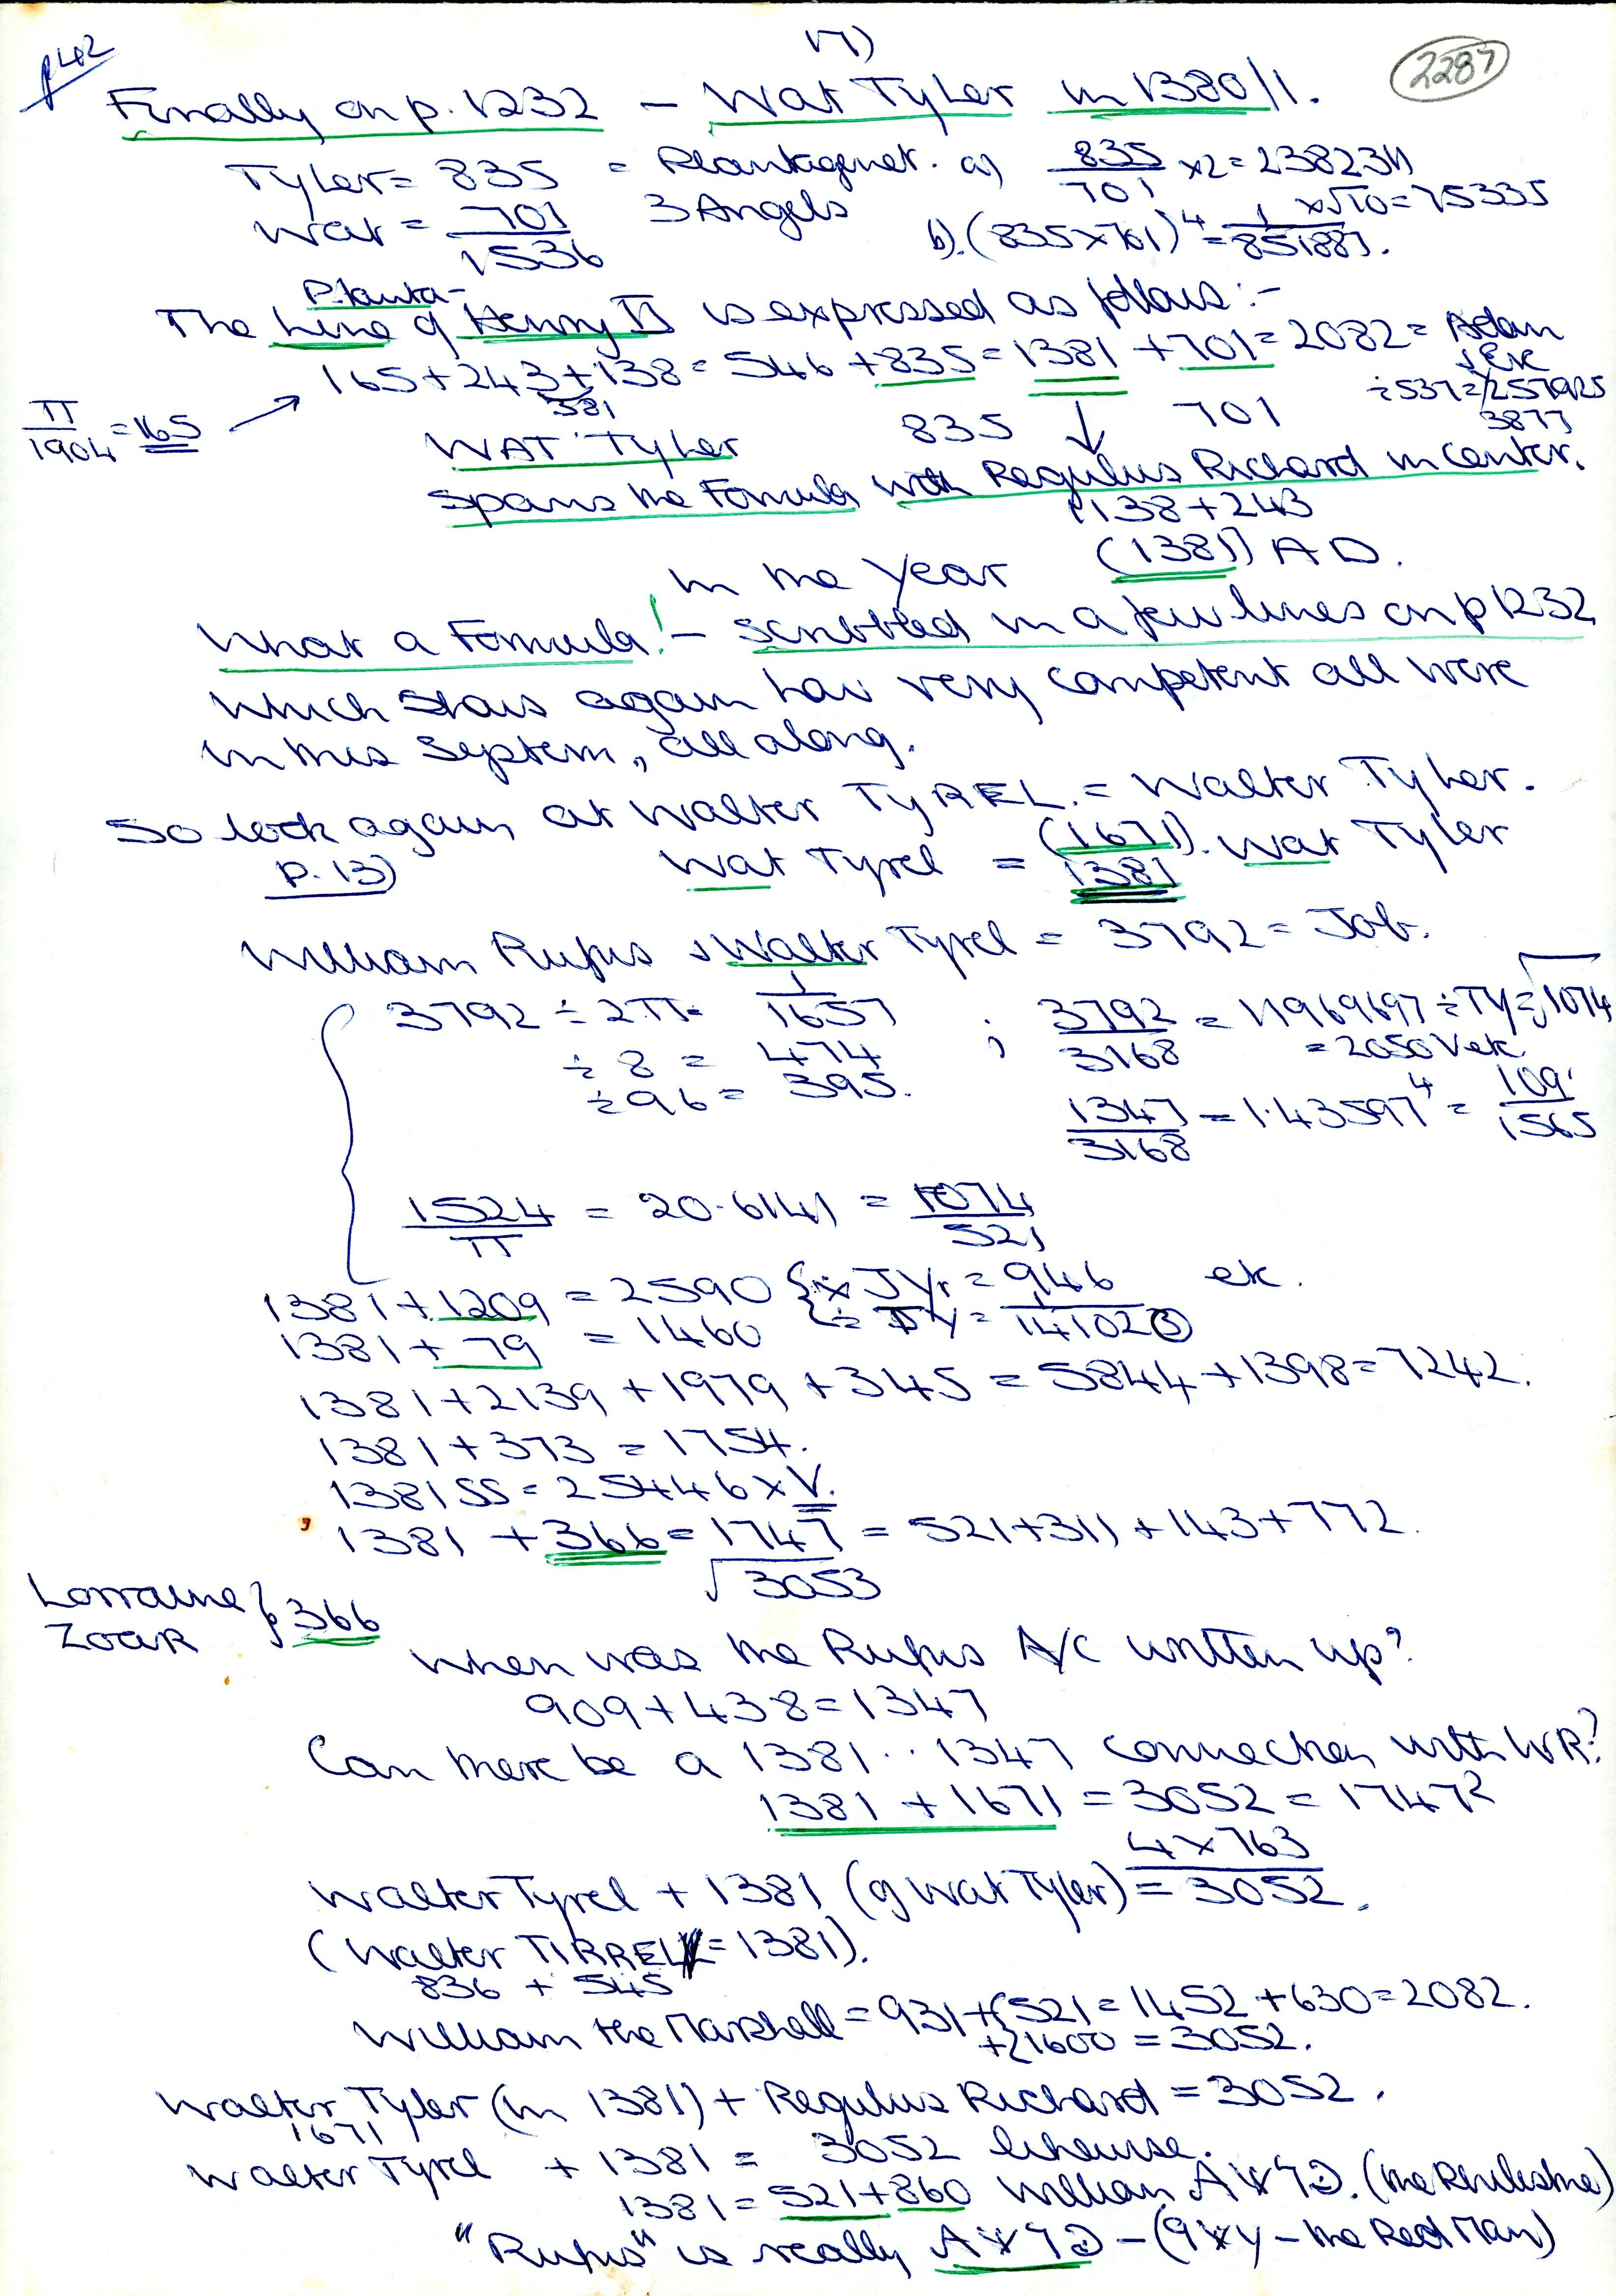 p42
17)
2287
Finally on p. 1232 – Wat Tyler in 1380/1.
Tyler = 835 = Plantagenet. a) 835/701 x2 = 238231)
Wat = 701 3 Angels x√10 = 75335
1536 b). (835x701)⁴ = 1/851887.
Planta-
The Line of Henry II is expressed as follows :-
165+243+138 = 546 +835 = 1381 +701 = 2082 = Adam
381 ÷537 = 1/257925
π/1904 = 165 835 701 3877
WAT Tyler
spans the Formula with Regulus Richard in center.
138+243
in the Year (1381) AD.
What a Formula! – scribbled in a few lines on p1232
which shows again how very competent all were
in this System, all along.
So look again at Walter TYREL. = Walter Tyler.
p. 13) (1671).
Wat Tyrel = 1381 Wat Tyler
William Rufus & Walter Tyrel = 3792 = Job.
3792 ÷ 2π = 1/1657 ; 3792/3168 = 11969697 ÷ TY = √1074
÷ 8 = 474 = 2050 Vek
÷ 96 = 395. 1347/3168 = 1.43597⁴ = 109/1565
1524/π = 20.6141 = 1074/521
1381 + 1209 = 2590 {x JYr = 946 ek.
1381 + 79 = 1460 {÷ TY = 1/141023
1381 + 2139 + 1979 + 345 = 5844 + 1398 = 7242.
1381 + 373 = 1754.
1381 SS = 25446 x V.
1381 + 366 = 1747 = 521+311+143+772.
√3053
Lorraine } 366
Zoar
When was the Rufus A/C written up?
909+438 = 1347
Can there be a 1381 .. 1347 connection with WR?
1381 + 1671 = 3052 = 1747²
4 x 763
Walter Tyrel + 1381 (of Wat Tyler) = 3052.
(Walter TIRREL = 1381).
836 + 545
William the Marshall = 931 +{521 = 1452 + 630 = 2082.
+{1600 = 3052.
Walter Tyler (in 1381) + Regulus Richard = 3052.
1671
Walter Tyrel + 1381 = 3052 likewise.
1381 = 521+860 William
"Rufus" is really – the Red Man)